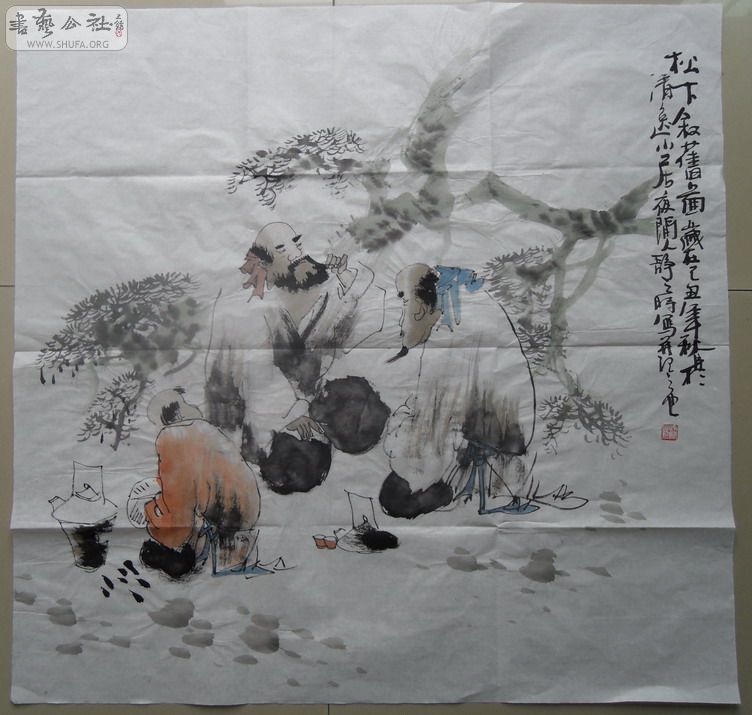 書藝公社
WWW.SHUFA.ORG
松下敘舊圖歲在己丑年秋於
清逸小居夜闌人靜之時寫并記之也